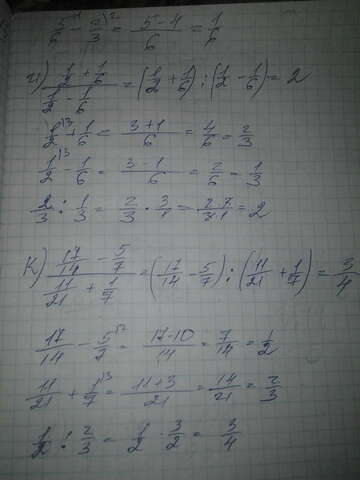 5/6 - 2/3 \2 = 5-4/6 = 1/6
и) (1/2 + 1/6)/(1/2 - 1/6) = (1/2 + 1/6) : (1/2 - 1/6) = 2
1/2 \3 + 1/6 = 3+1/6 = 4/6 = 2/3
1/2 \3 - 1/6 = 3-1/6 = 2/6 = 1/3
2/3 : 1/3 = 2/3 · 3/1 = = 2
к) (17/14 - 5/7)/(11/21 + 1/7) = (17/14 - 5/7) : (11/21 + 1/7) = 3/4
17/14 - 5/7 \2 = 17-10/14 = 7/14 = 1/2
11/21 + 1/7 \3 = 11+3/21 = 14/21 = 2/3
1/2 : 2/3 = 1/2 · 3/2 = 3/4